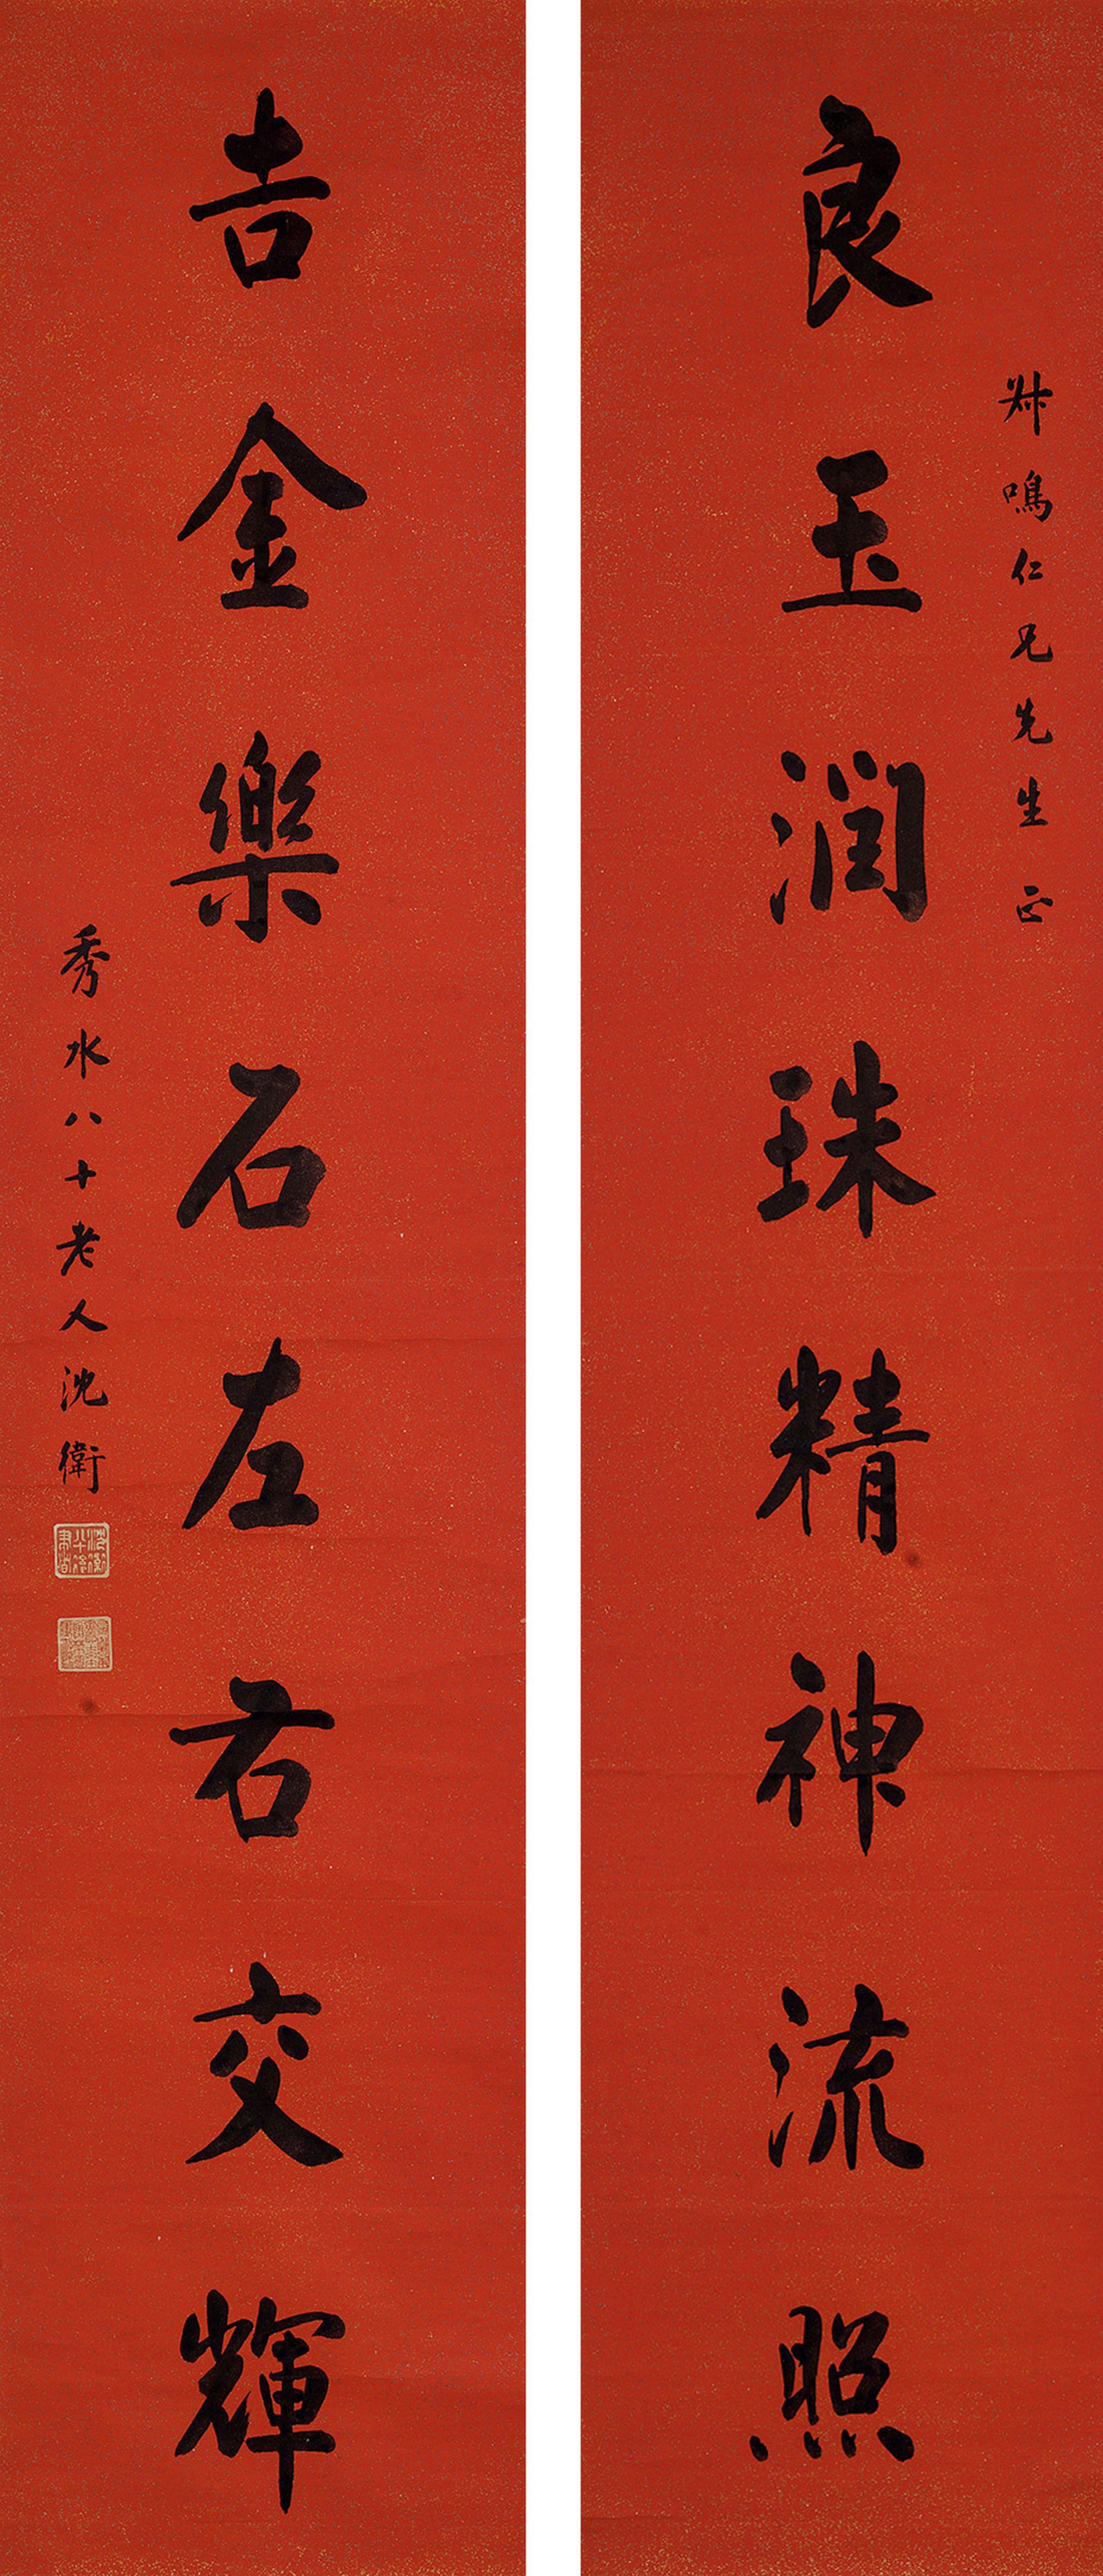 良玉潤珠精神流照
叔鳴仁兄先生正
吉金樂石左右交輝
秀水八十老人沈衛